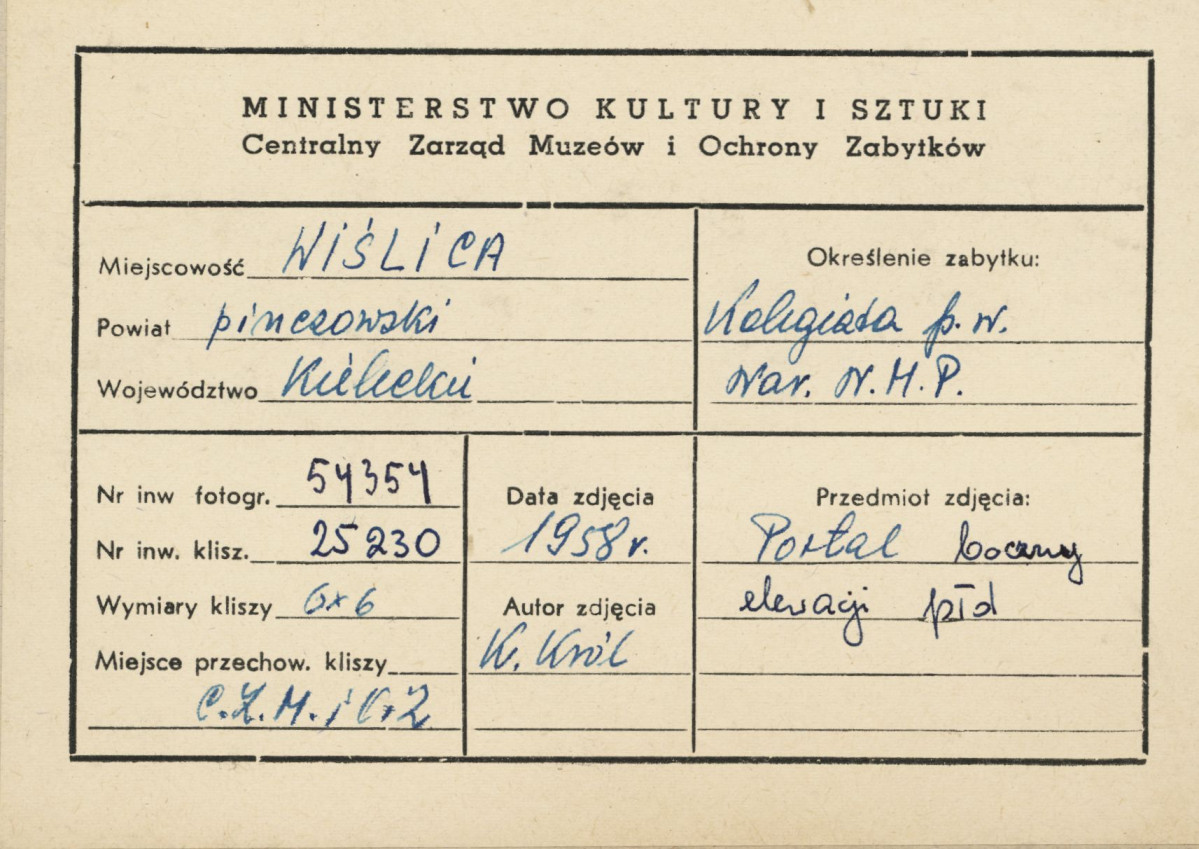 MINISTERSTWO KULTURY I SZTUKI
Centralny Zarząd Muzeów i Ochrony Zabytków
Miejscowość WIŚLICA
Powiat pinczowski
Województwo Kieleckie
Określenie zabytku:
Kolegiata p.w.
Nar. N.M.P.
Nr inw fotogr. 54354
Nr inw. klisz. 25230
Wymiary kliszy 6x6
Miejsce przechow. kliszy
C.Z.M. i O.Z
Data zdjęcia
1958 r.
Autor zdjęcia
K. Król
Przedmiot zdjęcia:
Portal boczny
elewacji płd